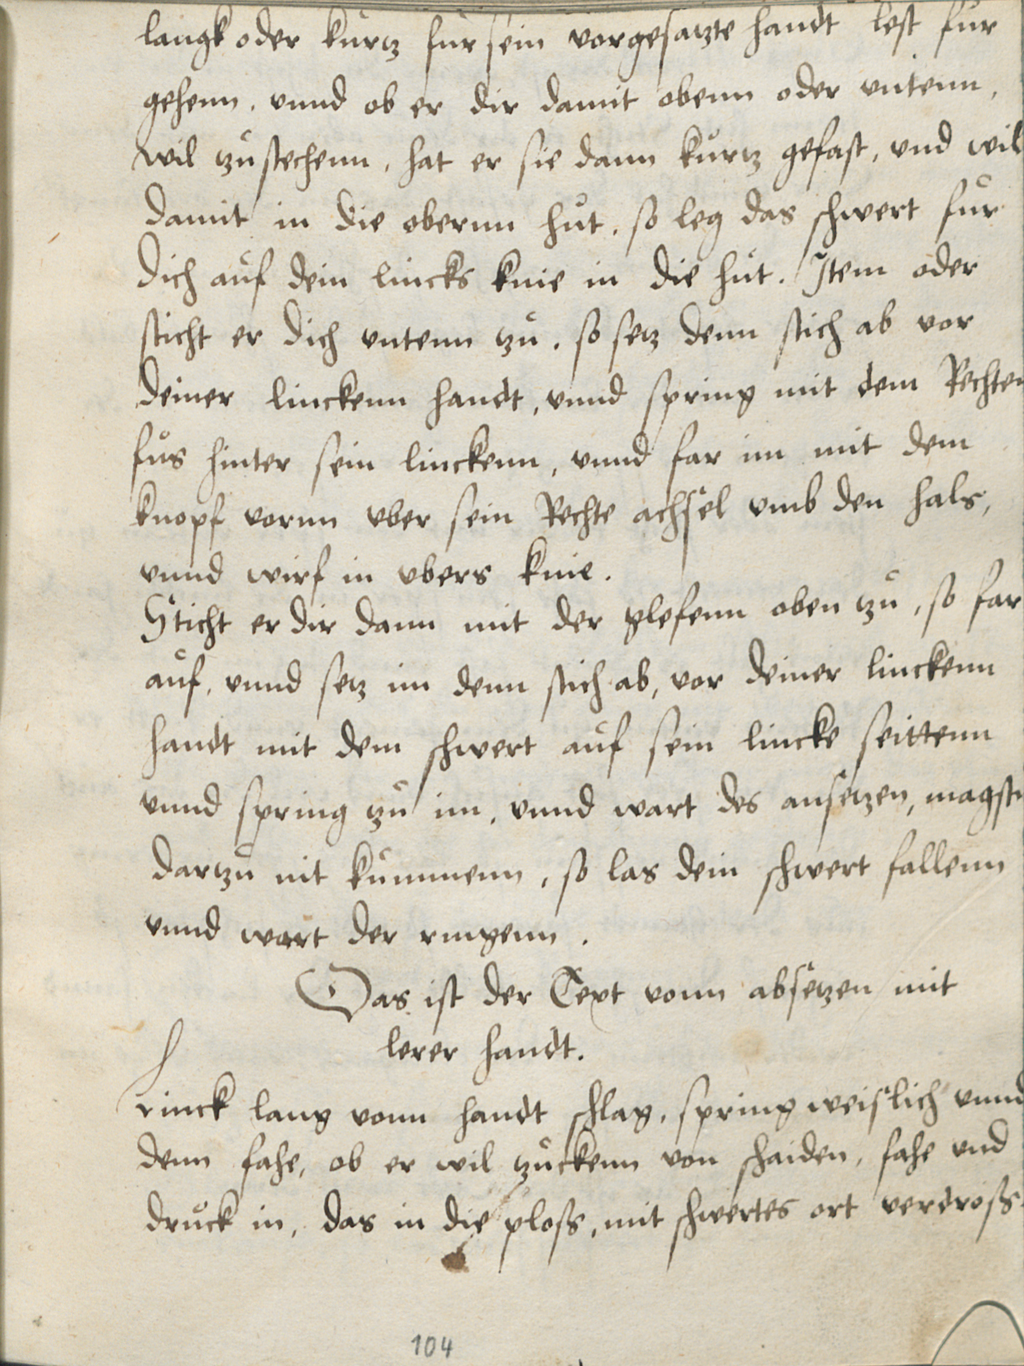 langk oder kurtz fur sein vorgesatzte handt lest fur
gehenn. vnnd ob er dir damit obenn oder vntenn,
wil zu stechenn, hat er sie dann kurtz gefast, vnd wil
damit in die obernn hut, so leg das schwert fur
dich auf dein lincks knie in die hut. Item oder
sticht er dich vntenn zu, so setz denn stich ab vor
deiner linckenn handt, vnnd spring mit dem Rechten
fus hinter sein linckenn, vnnd far im mit dem
knopf vornn vber sein Rechte achsel vmb den hals,
vnnd wirf in vbers knie.
Sticht er dir dann mit der glefenn oben zu, so far
auf, vnnd setz im denn stich ab, vor deiner linckenn
handt mit dem schwert auf sein lincke seittenn
vnnd spring zu im, vnnd wart des ansetzen, magstu
dartzu nit kummenn, so las dein schwert fallenn
vnnd wart der ringenn.
Das ist der Text vonn absetzen mit
lerer handt.
Linck lang vonn handt schlag, spring weislich vnnd
denn fahe, ob er wil zuckenn von schaiden, fahe vnd
druck in, das in die ploss, mit schwertes ort verdross
104